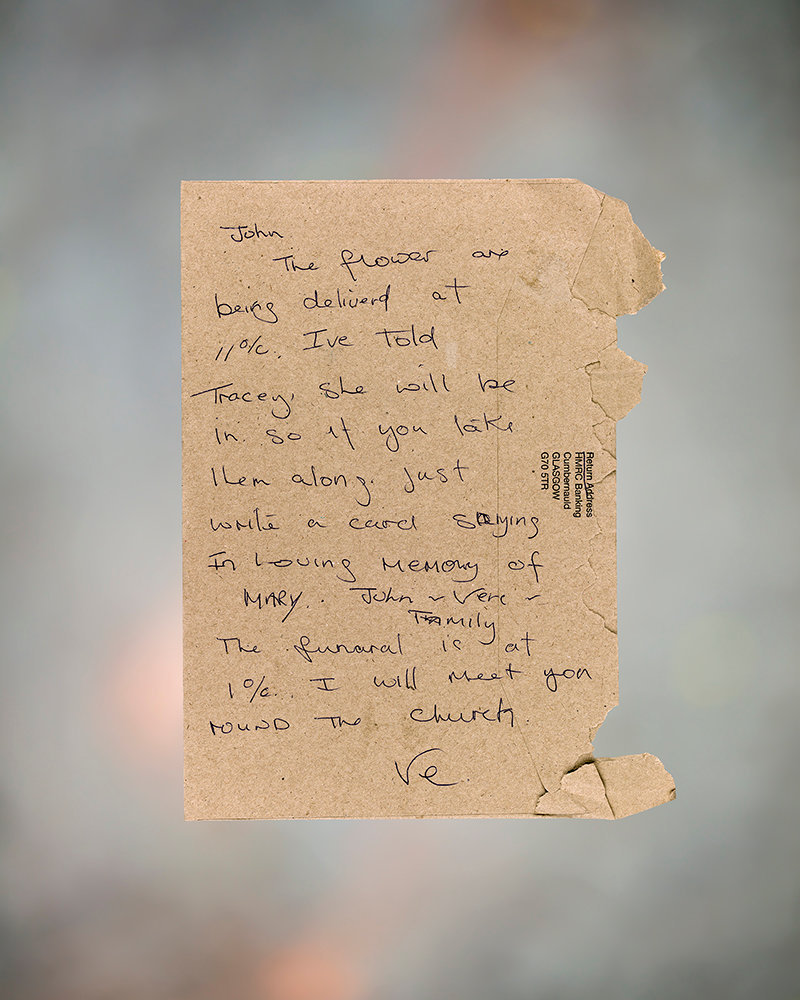 John
The flower are
being deliverd at
11 o/c. Ive Told
Tracey, she will be
in so if you take
them along. Just
write a card saying
In Loving Memory of
MARY. John ~ Vere ~
Family
The funaral is at
1 o/c. I will meet you
round The church.
Ve
Return Address
HMRC Banking
Cumbernauld
GLASGOW
G70 5TR